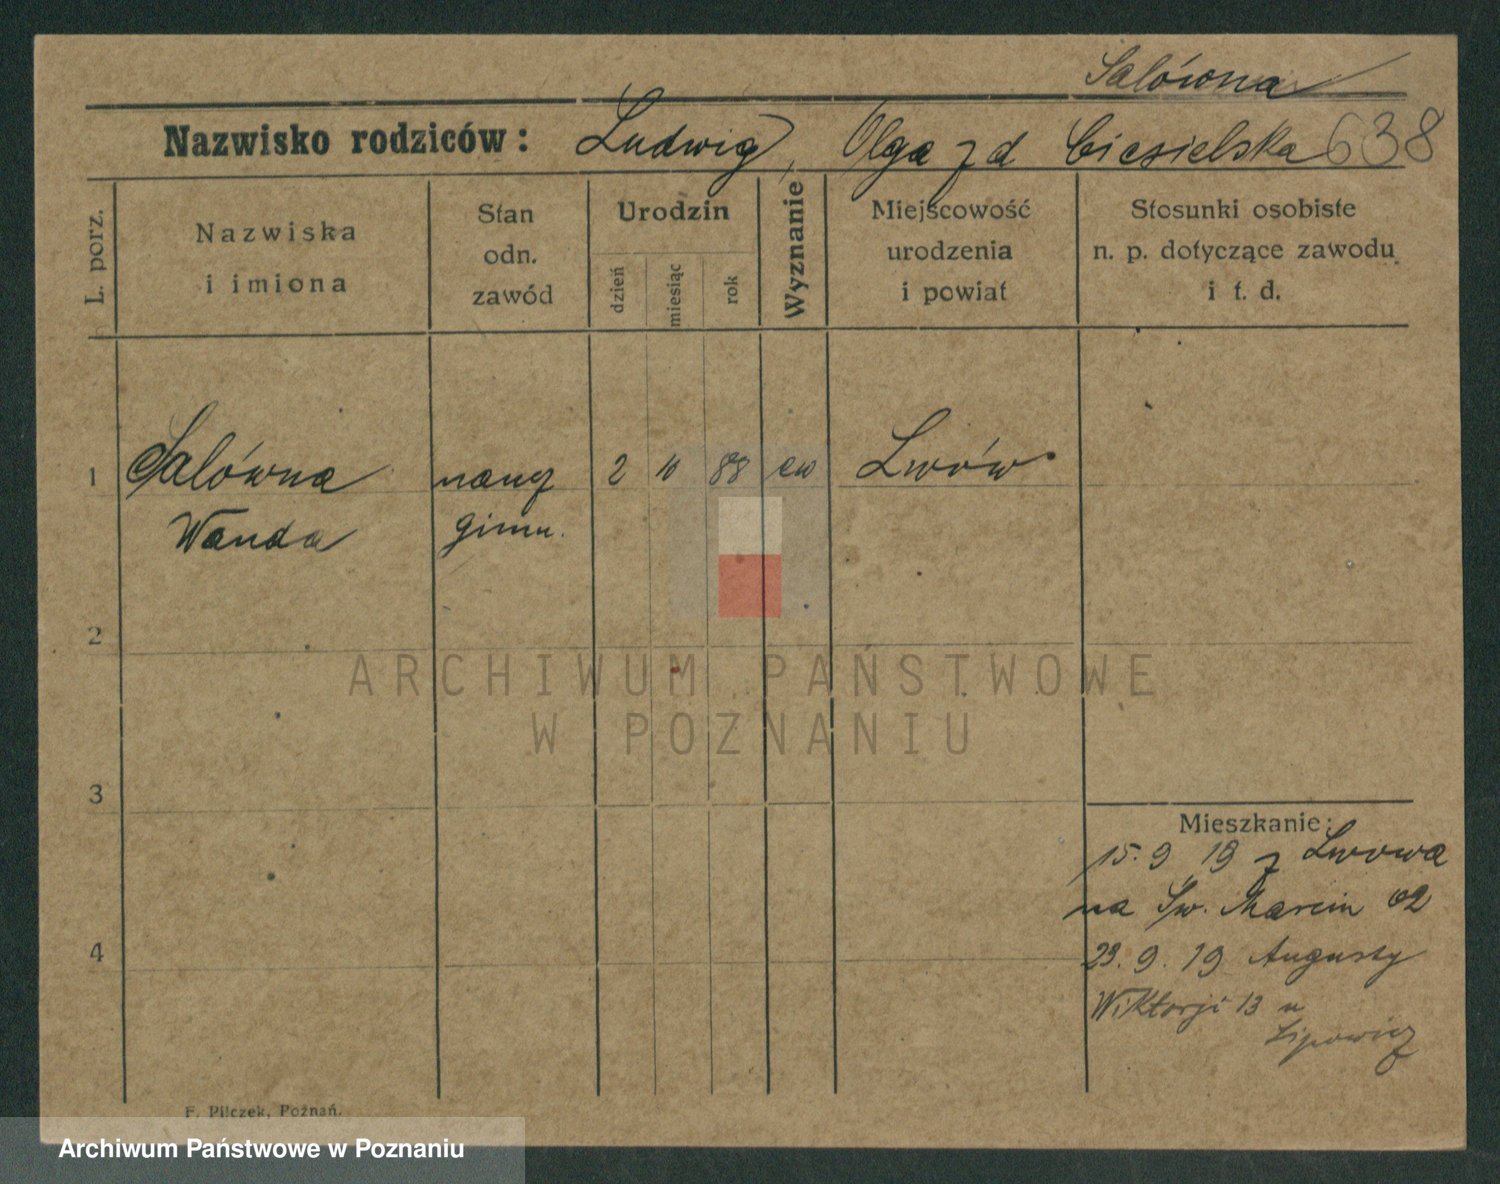 Salówna
Nazwisko rodziców: Ludwig, Olga z d Ciesielska 638
L. porz.
Nazwiska
i imiona
Stan
odn.
zawód
Urodzin
dzień
miesiąc
rok
Wyznanie
Miejscowość
urodzenia
i powiat
Stosunki osobiste
n. p. dotyczące zawodu
i t. d.
1 Salówna naucz 2 10 88 ew Lwów
Wanda gimn.
2
3
4
Mieszkanie:
15. 9 19 z Lwowa
na Św. Marcin 62
23. 9. 19 Augusty
Wiktorji 13 u
Lipowicz
F. Pilczek, Poznań.
ARCHIWUM PAŃSTWOWE
W POZNANIU
Archiwum Państwowe w Poznaniu